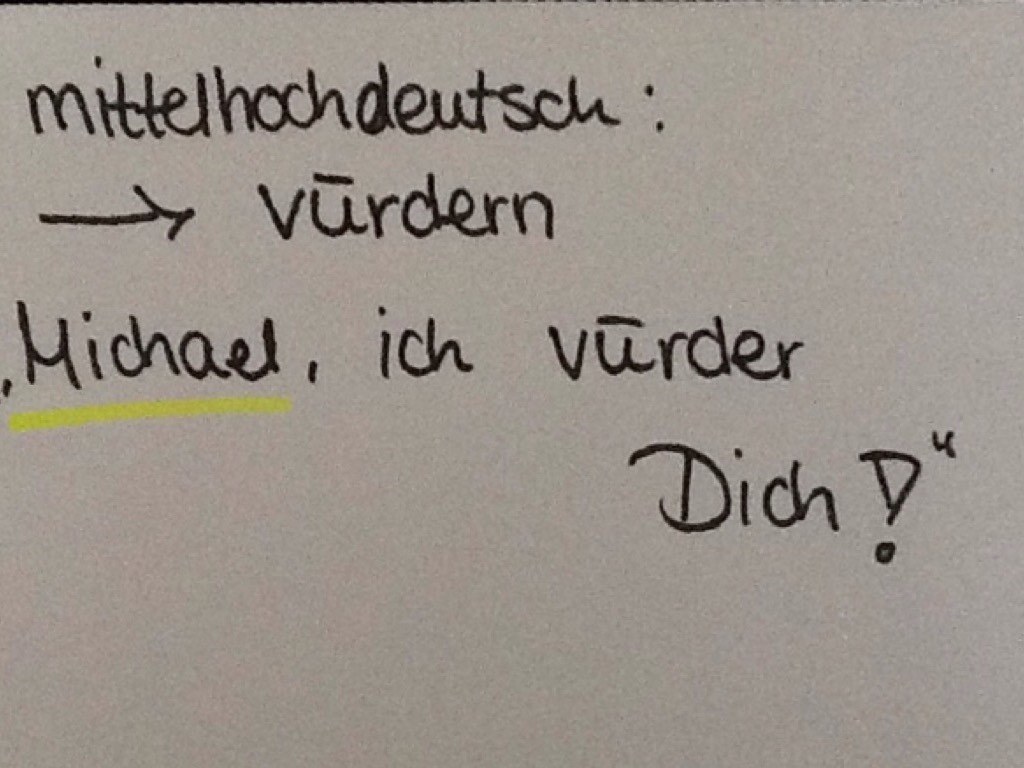 mittelhochdeutsch:
→ vūrdern
„Michael, ich vūrder
Dich!“